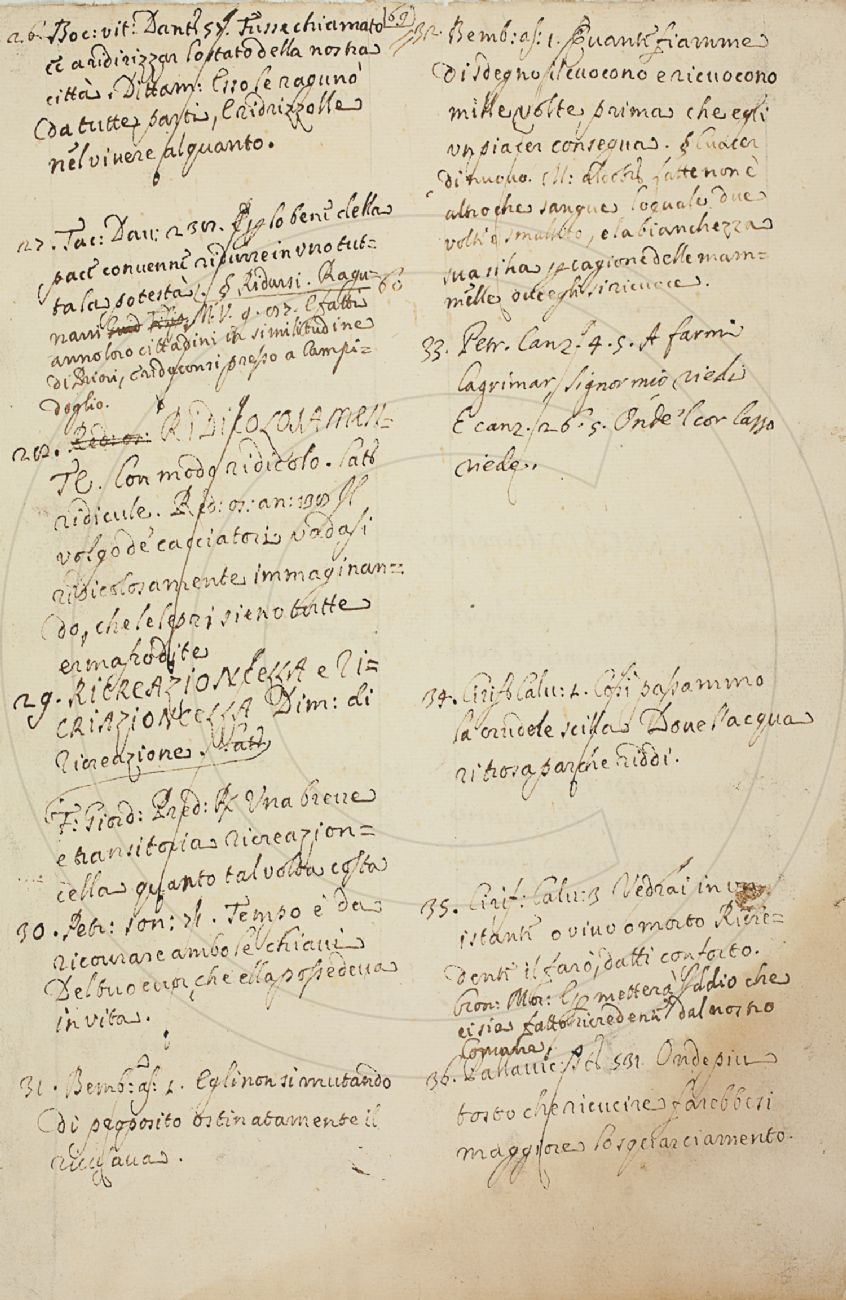 26. Boc: vit: Dant: 57. Fusse chiamato
a ridirizzar lo stato della nostra
città. Dittam: Esso le ragunò
da tutte parti, e ridrizzolle
nel vivere alquanto.
27. Tac: Dau: 230. Per lo bene della
pace convenne ridurre in uno tut=
ta la potestà. § Ridursi. Ragu=
narsi M. V. 9. 87. E fatti
anno loro cittadini in similitudine
di Priori, e riduconsi presso a Campi=
doglio.
28. Red: os: RIDICOLOSAMEN=
TE. Con modo ridicolo. Lat:
ridicule. Red: os: an: 190 Il
volgo de' cacciatori vadasi
ridicolosamente immaginan=
do, che le lepri sieno tutte
ermafrodite
29. RICREAZIONCELLA e RI=
CRIAZIONCELLA Dim: di
Ricreazione. Lat:
F: Giord: Pred: R. Una breve
e transitoria ricreazion=
cella quanto talvolta costa
30. Petr: son: 71. Tempo è da
ricovrare ambo le chiavi
Del tuo cuor, che ella possedeva
in vita.
31. Bemb: as: 1. Egli non si mutando
di proposito ostinatamente il
ricusava.
(69)
32. Bemb: as: 1. Quante fiamme
di sdegno il cuocono e ricuocono
mille volte prima che egli
un piacer consegua. § Cuocer
di nuovo. M: Aldobr: latte non è
altro che sangue lo quale due
volte è smaltito, e la bianchezza
sua si ha per cagione delle mam=
melle ove egli si ricuoce.
33. Petr. Canz: 4. 5. A farmi
lagrimar, signor mio riedi
E canz. 26. 5. Onde 'l cor lasso
riede.
34. Cirif. Calu: 1. Così passammo
la crudele scilla Dove l'acqua
ritrosa par che riddi.
35. Cirif: Calu: 3 Vedrai in un
istante o vivo o morto Ricre=
dente il farò, datti conforto.
Cron: Mor: Ci metterà Iddio che
ci sia fatto ricredente dal nostro
Comune.
36. Pallavic: 531. Onde più
tosto che ricucire farebbesi
maggiore lo squarciamento.